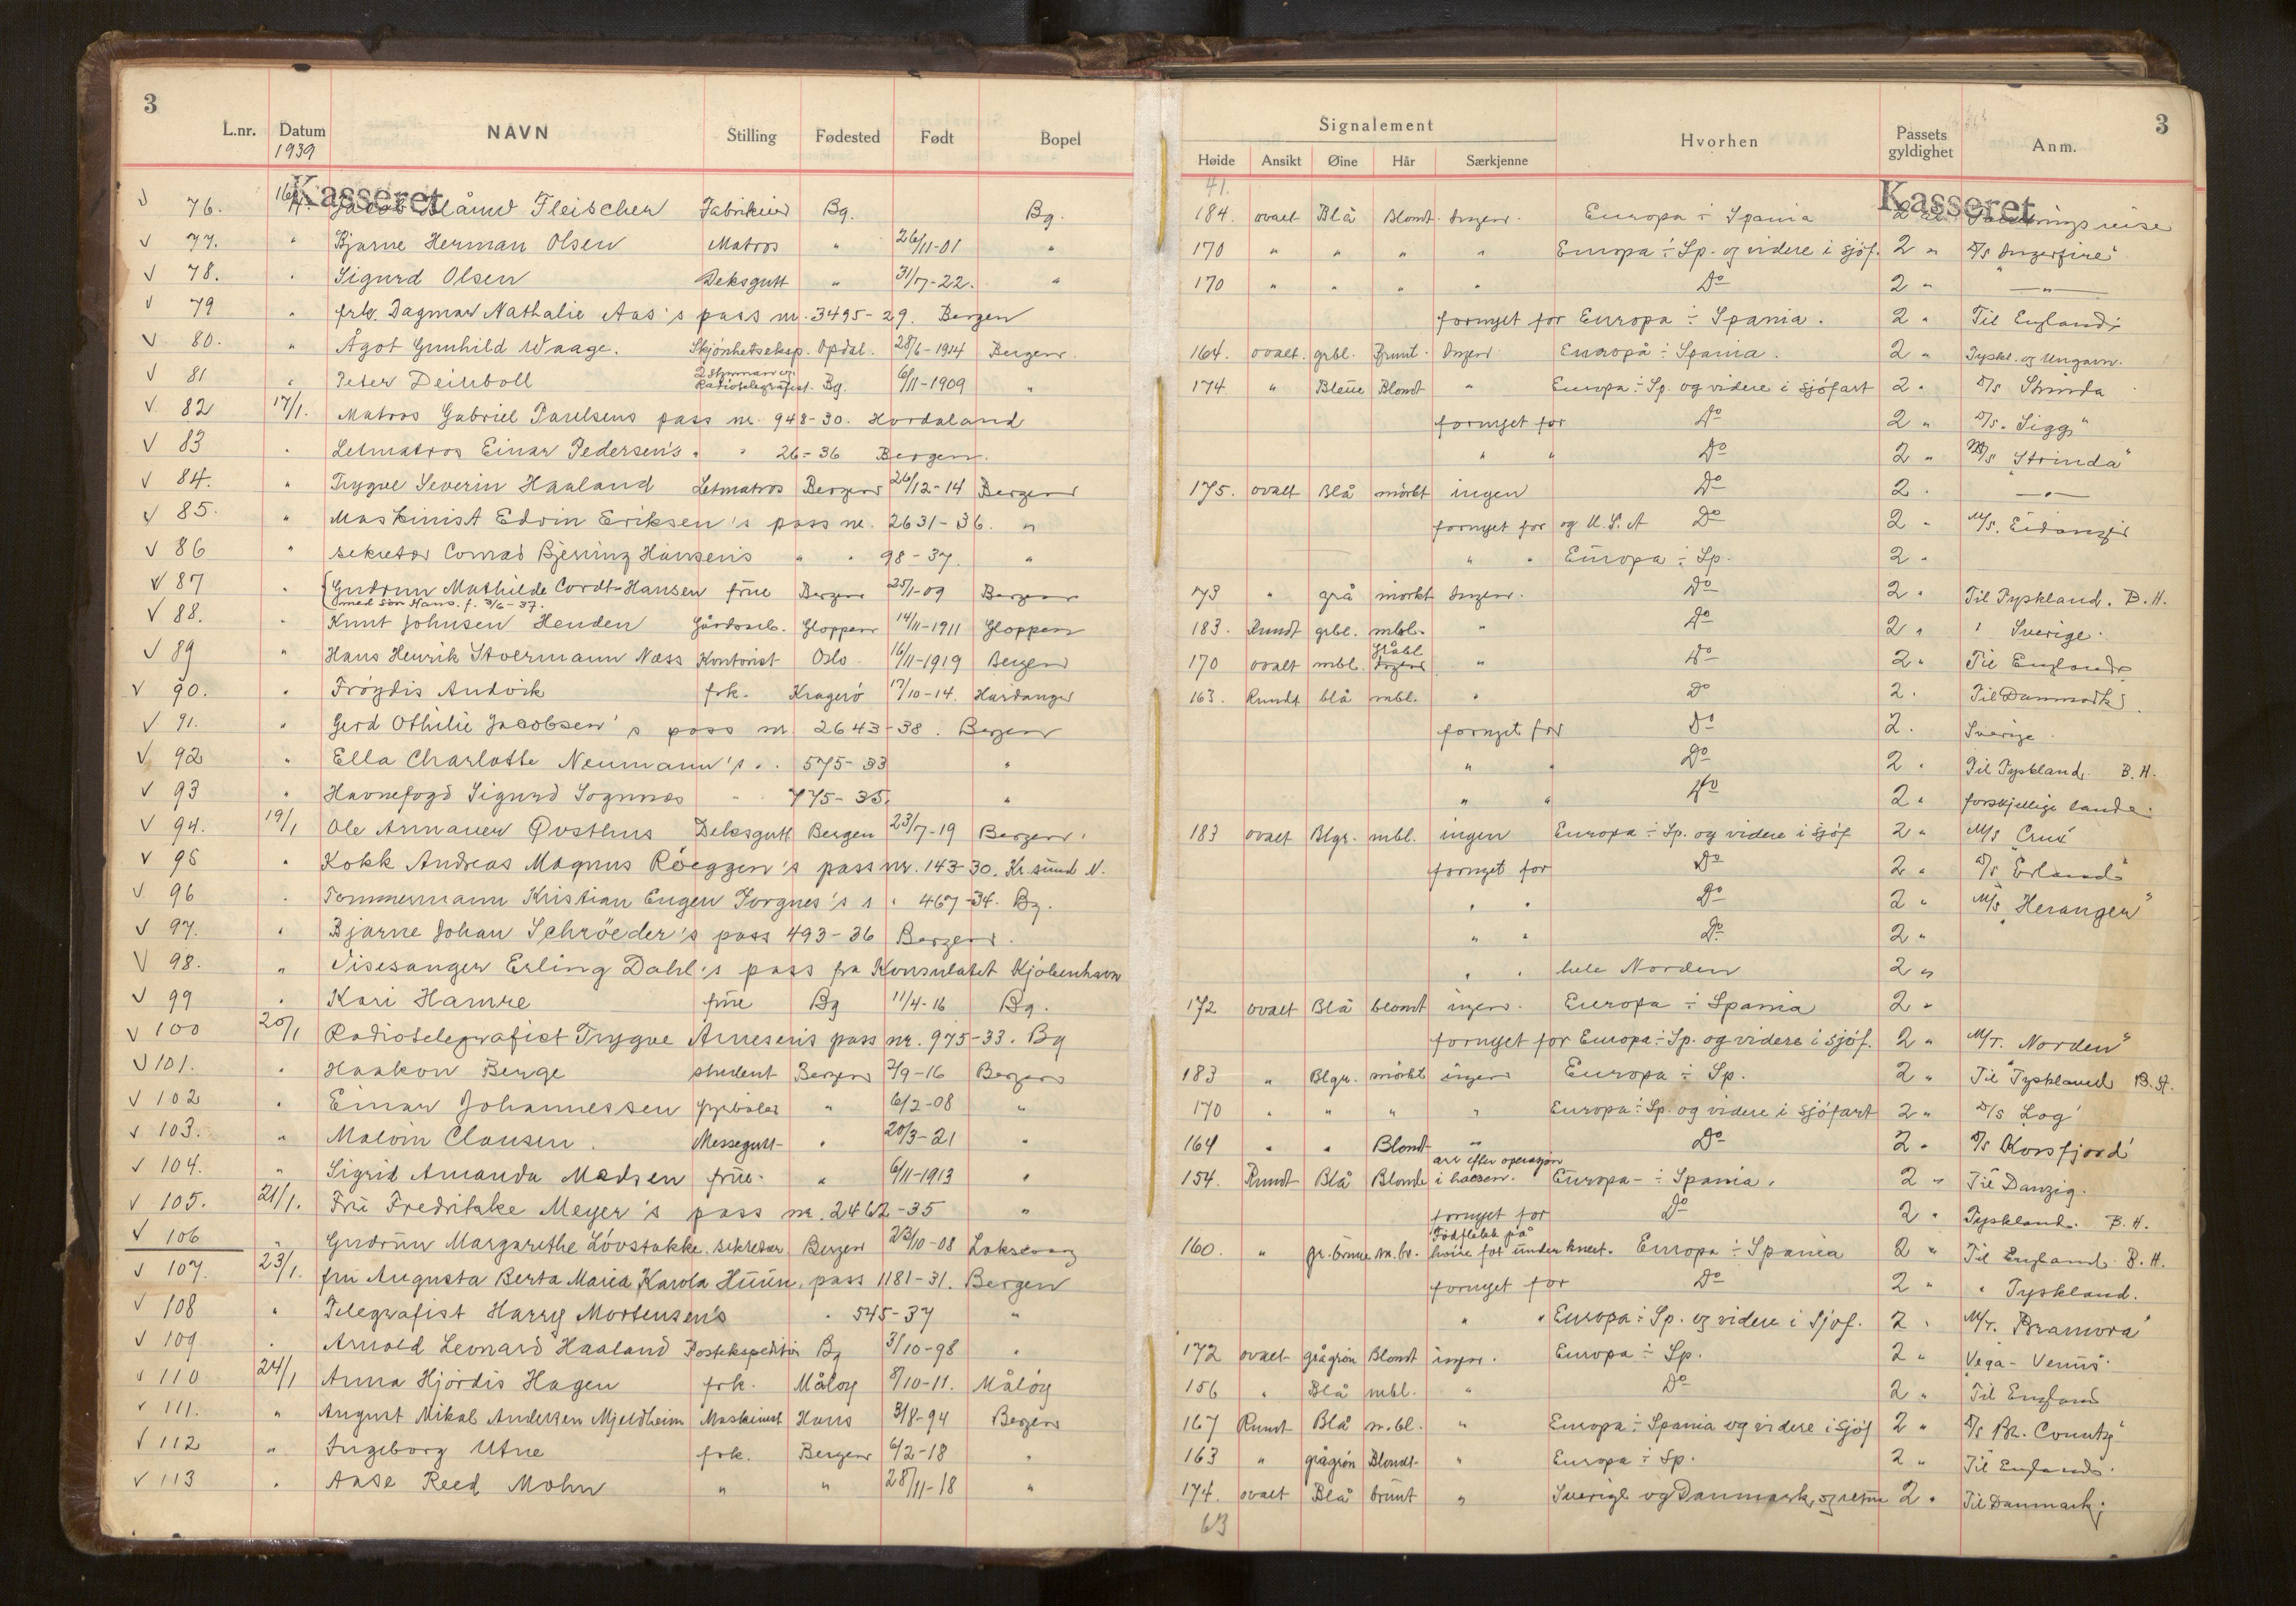 3
L.nr. Datum NAVN Stilling Fødested Født Bopel
1939
Signalement Hvorhen Passets gyldighet Anm. 3
Høide Ansikt Øine Hår Særkjenne
41.
Kasseret Kasseret
76. 16/1. Jacob Fleischer Fabrikeier Bg. Bg. 184. ovalt Blå Blondt. Ingen. Europa ÷ Spania 2
77. " Bjarne Herman Olsen Matros " 26/11-01 " 170 " " " " Europa ÷ Sp. og videre i sjöf. 2 " D/S "Ingerfire"
78. " Sigurd Olsen Deksgutt " 31/7-22. " 170 " " " " Do 2 " — " —
79 " frk. Dagmar Nathalie Aas's pass nr. 3495-29. Bergen fornyet for Europa ÷ Spania. 2 " Til England
80. " Ågot Gunhild Waage. Skjönhetseksp. Opdal. 28/6-1914 Bergen. 164. ovalt. grbl. Brunt. Ingen. Europa ÷ Spania. 2 " Tyskl. og Ungarn.
81 " Peter Deinboll 2 styrmann og Radiotelegrafist. Bg. 6/11-1909 " 174 " Blåue Blondt " Europa ÷ Sp. og videre i sjöfart 2 " D/S Strinda
82 17/1. Matros Gabriel Paulsens pass nr. 948-30. Hordaland fornyet for Do 2 " D/S. "Sigg"
83 " Letmatros Einar Pedersen's " " 26-36 Bergen. " " Do 2 " M/S "Strinda"
84. " Trygve Severin Haaland Letmatros Bergen 26/12-14 Bergen 175. ovalt Blå mörkt ingen Do 2 " — " —
85. " Maskinist Edvin Eriksen's pass nr. 2631-36. " fornyet for og U.S.A Do 2 " M/S. Eidanger
86 " Sekretær Conrad Bjerring Hansen's " " 98-37. " " " Europa ÷ Sp. 2 "
87 " Gudrun Mathilde Cordt-Hansen frue Bergen 25/1-09 Bergen 73 " grå mörkt Ingen. Do 2 " Til Tyskland. B.H.
med sön Hans. f. 3/6-37.
88. " Knut Johnsen Henden Gårdsarb. Gloppen 14/11-1911 Gloppen 183. Rundt grbl. mbl. " Do 2 " " Sverige.
89 " Hans Henrik Stoermann Næss Kontorist Oslo 16/11-1919 Bergen 170 ovalt mbl. Gråbl " Do 2 " Til England
90. " Fröydis Andvik frk. Kragerö 17/10-14. Hardanger 163. Rundt blå mbl. " Do 2 " Til Danmark
91. " Gerd Othilie Jacobsen's pass nr. 2643-38. Bergen fornyet for Do 2 " Sverige
92 " Ella Charlotte Neumann's " " 575-33 " " " Do 2 " Til Tyskland. B.H.
93 " Havnefogd Sigurd Sognnæs " 775-35. " " " Do 2 " forskjellige lande.
94. 19/1 Ole Armauer Østhus Deksgutt Bergen 23/7-19 Bergen. 183 ovalt Blgr. mbl. ingen Europa ÷ Sp. og videre i sjöf 2 " M/S "Crux"
95 " Kokk Andreas Magnus Röeggen's pass nr. 143-30. Kr.sund N. fornyet for Do 2 " D/S "Erland"
96 " Tømmermann Kristian Eugen Torgnes's " " 467-34. Bg. " " Do 2 " M/S "Heranger"
97. " Bjarne Johan Schröeder's pass 493-36 Bergen. " " Do 2 "
98. " Visesanger Erling Dahl's pass fra Konsulatet Kjöbenhavn " " hele Norden 2 "
99 " Kari Hamre frue Bg 11/4-16 Bg. 172 ovalt Blå blondt ingen. Europa ÷ Spania 2 "
100 20/1 Radiotelegrafist Trygve Arnesen's pass nr. 975-33. Bg fornyet for Europa ÷ Sp. og videre i sjöf. 2 " M/T. "Norden"
101. " Haakon Berge student Bergen 2/9-16 Bergen 183 " Blgr. mörkt ingen Europa ÷ Sp. 2 " Til Tyskland B.H.
102 " Einar Johannessen Fyrböter " 6/2-08 " 170 " " " " Europa ÷ Sp. og videre i sjöfart 2 " D/S "Log"
103. " Malvin Clausen. Messegutt " 20/3-21 " 164 " " Blondt " Do 2 " D/S Korsfjord
104. " Sigrid Amanda Madsen frue. " 6/11-1913 " 154. Rundt Blå Blonde arr efter operasjon i halsen. Europa ÷ Spania. 2 " Til Danzig.
105. 21/1. Fru Fredrikke Meyer's pass nr. 2462-35 " fornyet for Do 2 " Tyskland. B.H.
106 " Gudrun Margarethe Lövstakke. Sekretær Bergen 22/10-08 Laksevaag 160. " gr.brune m.br. Födflekk på höire fot under kneet. Europa ÷ Spania 2 " Til England B.H.
107. 23/1. fru Augusta Berta Maria Karola Huun. pass 1181-31. Bergen fornyet for Do 2 " " Tyskland.
108 " Telegrafist Harry Mortensen's " 545-37 " " " Europa ÷ Sp. og videre i Sjöf. 2 " M/T. "Bramora"
109 " Arnold Leonard Haaland Postekspeditör Bg 3/10-98 " 172 ovalt grågrön Blondt ingen. Europa ÷ Sp. 2 " Vega - Venus
110 24/1 Anna Hjördis Hagen frk. Målöy 8/10-11. Målöy 156 " Blå mbl. " Do 2 " Til England
111. " August Mikal Andersen Mjeldheim Maskinist Haus 3/8-94 Bergen 167 Rundt Blå m.bl. " Europa ÷ Spania og videre i sjöf 2 " D/S "Br. County"
112 " Ingeborg Utne frk. Bergen 6/2-18 " 163 " grågrön Blondt " Europa ÷ Sp. 2 " Til England.
113 " Aase Reed Mohn " " 28/11-18 " 174. ovalt Blå brunt " Sverige og Danmark, og retur 2 " Til Danmark.
63